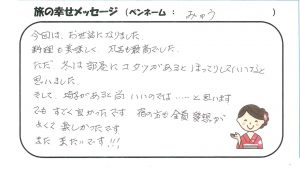 旅の幸せメッセージ（ペンネーム： みゅう ）
今回は、お世話になりました
料理も美味しく 風呂も最高でした
ただ 冬は部屋にコタツがあると ほっこりしていいなと
思いました
そして 椅子があると尚 いいのでは……と思います
でもすごく良かったです 宿の方も全員愛想が
よくて 楽しかったです
また 来たいです!!!